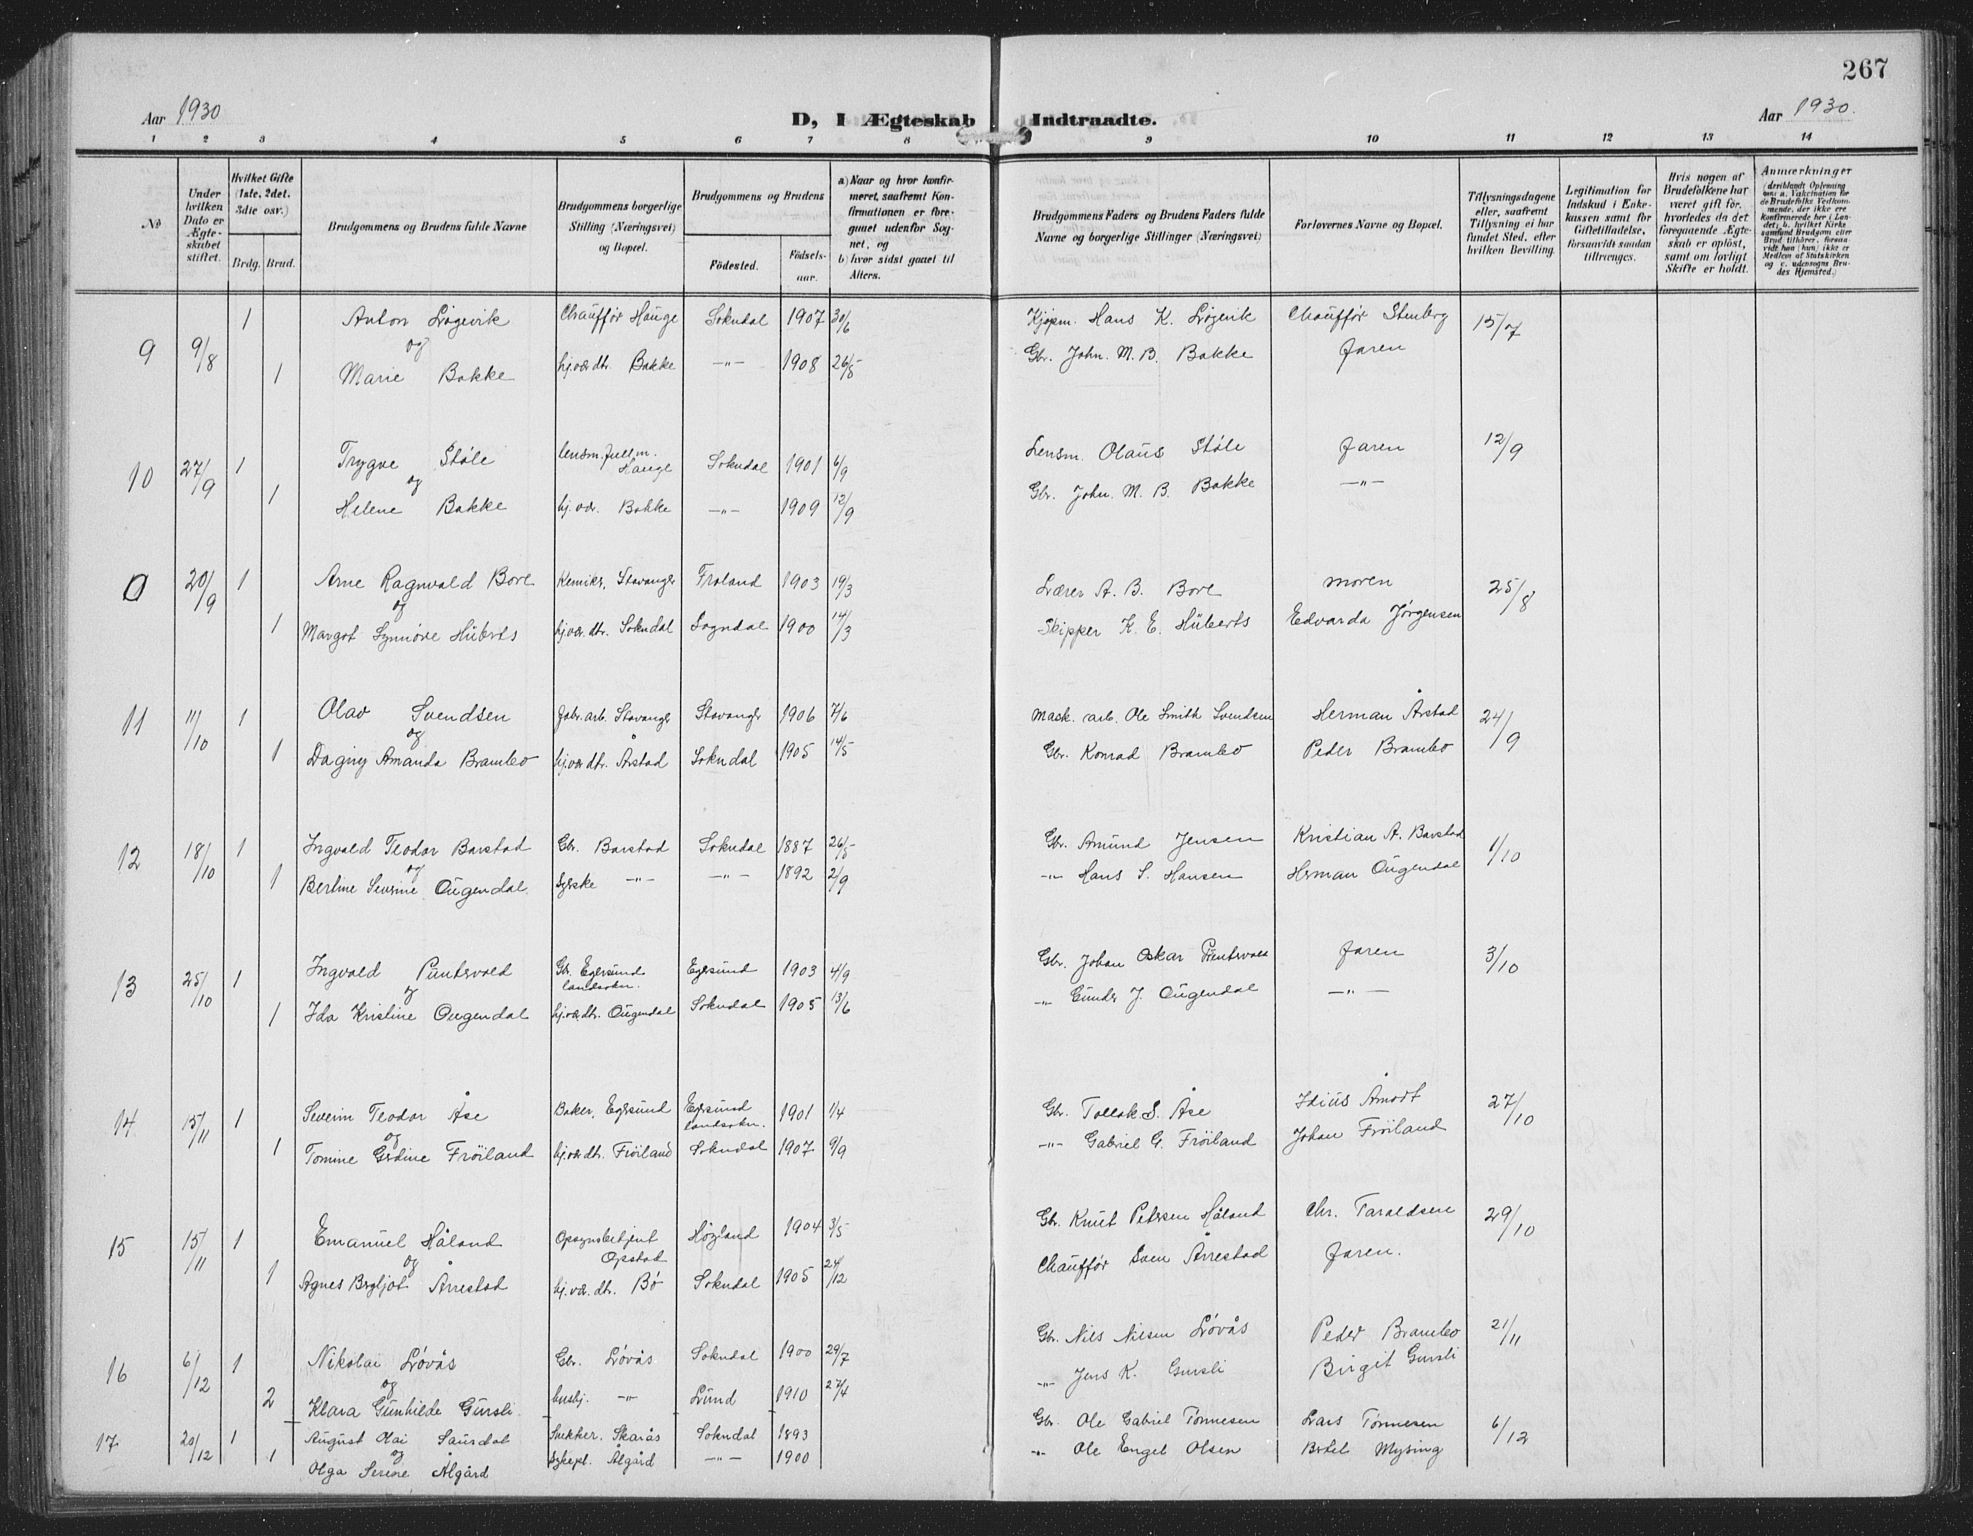 267
Aar 1930
D, I Ægteskab Indtraadte.
Aar 1930.
1 2 3 4 5 6 7 8 9 10 11 12 13 14
№
Under hvilken Dato er Ægteskabet stiftet.
Hvilket Gifte (1ste, 2det. 3die osv.)
Brdg. Brud.
Brudgommens og Brudens fulde Navne
Brudgommens borgerlige Stilling (Næringsvei) og Bopæl.
Brudgommens og Brudens
Födested. Födselsaar.
a) Naar og hvor konfirmeret, saafremt Konfirmationen er foregaaet udenfor Sognet, og
b) hvor sidst gaaet til Alters.
Brudgommens Faders og Brudens Faders fulde Navne og borgerlige Stillinger (Næringsvei)
Forlovernes Navne og Bopæl.
Tillysningsdagene eller, saafremt Tillysning ei har fundet Sted, efter hvilken Bevilling.
Legitimation for Indskud i Enkekassen samt for Giftetilladelse, forsaavidt saadan tiltrænges.
Hvis nogen af Brudefolkene har været gift før, hvorledes da det foregaaende Ægteskab er oplöst, samt om lovligt Skifte er holdt.
Anmærkninger
9 9/8 1 Anton Løgevik Chauffør Hauge Sokndal 1907 30/6 Kjøpm. Hans K. Løgevik Chauffør Stenberg 15/7
og
1 Marie Bakke hj.vær.dtr. Bakke —"— 1908 26/5 Gbr. John. M. B. Bakke faren
10 27/9 1 Trygve Støle lensm.fullm. Hauge Sokndal 1901 6/9 Lensm. Olaus Støle faren 12/9
og
1 Helene Bakke hj.vær. Bakke —"— 1909 12/9 Gbr. John. M. B. Bakke —"—
0 20/9 1 Arne Ragnvald Bore Kemiker, Stavanger Froland 1903 19/3 Lærer A. B. Bore moren 25/8
og
1 Margot Synnøve Hüberts hj.vær.dtr. Sokndal Sogndal 1900 14/3 Skipper K. E. Hüberts Edvarda Jørgensen
11 11/10 1 Olav Svendsen fabr.arb. Stavanger Stavanger 1906 7/6 Mask. arb. Ole Smith Svendsen Herman Årstad 24/9
og
1 Dagny Amanda Brambo hj.vær.dtr. Årstad Sokndal 1905 14/5 Gbr. Konrad Brambo Peder Brambo
12 18/10 1 Ingvald Teodor Barstad Gbr. Barstad Sokndal 1887 26/5 Gbr. Amund Jensen Kristian A. Barstad 1/10
og
1 Bertine Severine Ougendal. Syerske —"— —"— 1892 2/9 —"— Hans S. Hansen Herman Ougendal
13 25/10 1 Ingvald Puntervold Gbr. Egersund landsokn. Egersund 1903 4/9 Gbr. Johan Oskar Puntervold faren 3/10
og
1 Ida Kristine Ougendal hj.vær.dtr. Ougendal Sokndal 1905 13/6 —"— Gunder J. Ougendal —"—
14 15/11 1 Severin Teodor Åse Baker, Egersund Egersund landsokn. 1901 1/4 Gbr. Tollak S. Åse Idius Åmodt 27/10
og
1 Tomine Gerdine Fröiland hj.vær.dtr. Fröiland Sokndal 1907 9/9 —"— Gabriel G. Fröiland Johan Fröiland
15 15/11 1 Emanuel Håland Opsynsbetjent Opstad Högland 1904 3/5 Gbr. Knut Petersen Håland Chr. Taraldsen 29/10
og
1 Agnes Bergljot Årrestad hj.vær.dtr. Bø Sokndal 1905 24/12 Chauffør Sven Årrestad faren.
16 6/12 1 Nikolai Løvås Gbr. Løvås Sokndal 1900 29/7 Gbr. Nils Nilsen Løvås Peder Brambo 21/11
og
2 Klara Gunhilde Gursli. hushj. —"— Lund 1910 27/4 —"— Jens K. Gursli Birgit Gursli
17 20/12 1 August Olai Saurdal Snekker. Skarås Sokndal 1893 Gbr. Ole Gabriel Tønnesen Lars Tønnesen 6/12
og
1 Olga Serine Ålgård Sykepl. Ålgård —"— 1900 —"— Ole Engel Olsen Bertel Mysing